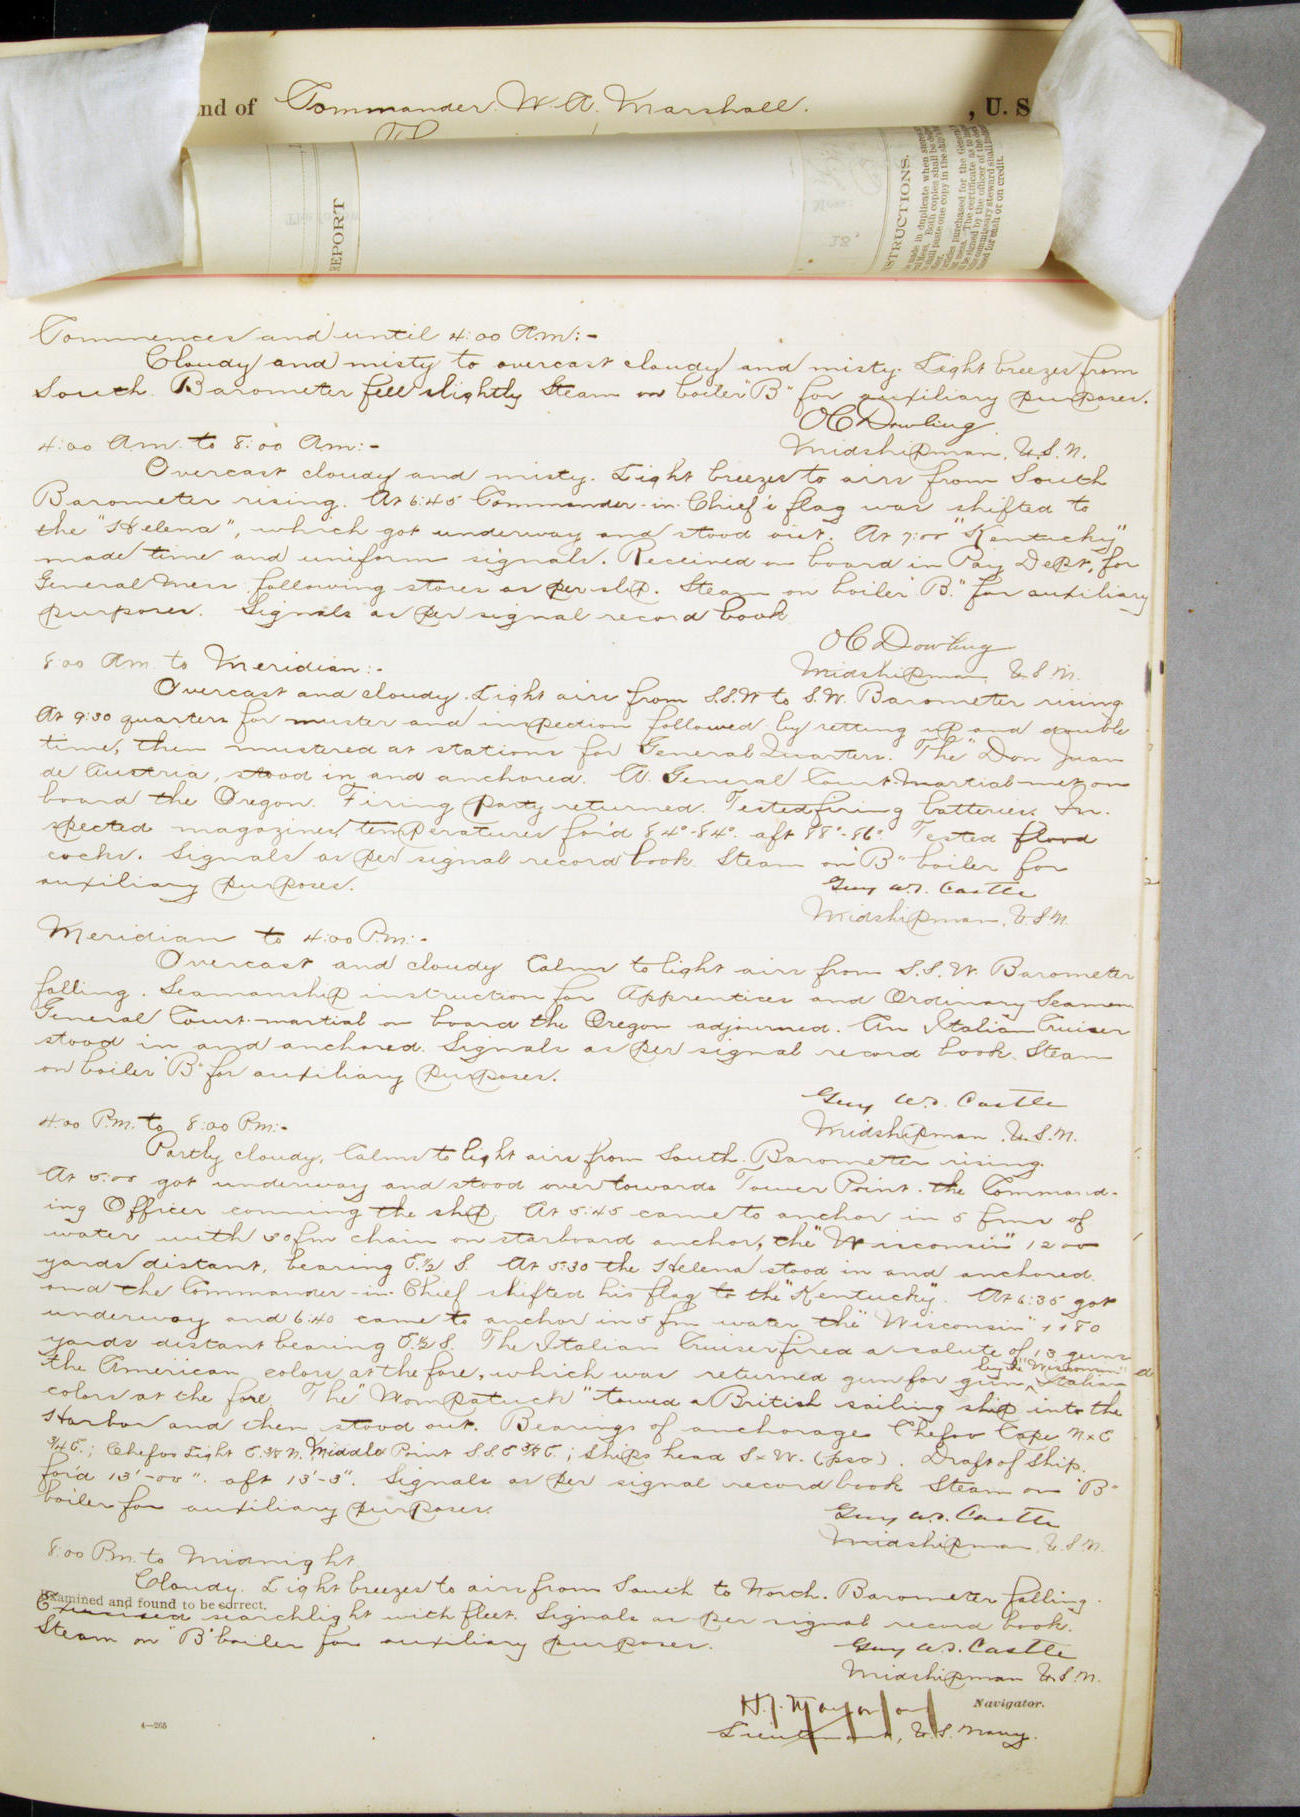 nd of Commander W. A. Marshall. , U. S
REPORT
STRUCTIONS.
Commences and until 4:00 A.M:-
Cloudy and misty to overcast cloudy and misty. Light breezes from
South. Barometer fell slightly Steam on boiler "B" for auxiliary purposes.
O C Dowling
Midshipman, U.S.N.
4:00 A.M. to 8:00 A.M:-
Overcast cloudy and misty. Light breezes to airs from South
Barometer rising. At 6:45 Commander-in-Chief's flag was shifted to
the "Helena", which got underway and stood out. At 7:00 "Kentucky"
made time and uniform signals. Received on board in Pay Dept, for
General Mess following stores as per slip. Steam on boiler "B." for auxiliary
purposes. Signals as per signal record book
O C Dowling
Midshipman U.S.N.
8:00 A.M. to Meridian:-
Overcast and cloudy. Light airs from S.S.W to S.W. Barometer rising
At 9:30 quarters for muster and inspection followed by setting up and double
time, then mustered at stations for General Quarters. The "Don Juan
de Austria, stood in and anchored. A General Court Martial met on
board the Oregon. Firing party returned. Tested firing batteries. In-
spected magazines, temperatures for'd 84°-84° aft 88°-86° Tested flood
cocks. Signals as per signal record book. Steam on "B" boiler for
auxiliary purposes.
Guy W.S. Castle
Midshipman, U.S.N.
Meridian to 4:00 P.M:-
Overcast and cloudy Calms to light airs from S.S.W. Barometer
falling. Seamanship instruction for Apprentices and Ordinary Seamen
General Court-martial on board the Oregon adjourned. An Italian Cruiser
stood in and anchored. Signals as per signal record book. Steam
on boiler "B" for auxiliary purposes.
Guy W.S. Castle
Midshipman, U.S.N.
4:00 P.M. to 8:00 P.M:-
Partly cloudy, Calms to light airs from South. Barometer rising.
At 5:00 got underway and stood over towards Tower Point. the Command-
ing Officer conning the ship. At 5:45 came to anchor in 5 fms of
water with 30 fm chain on starboard anchor, the "Wisconsin" 1200
yards distant, bearing E.½ S. At 5:30 the Helena stood in and anchored.
and the Commander-in-Chief shifted his flag to the "Kentucky". At 6:35 got
underway and 6:40 came to anchor in 5 fm water the "Wisconsin" 1180
yards distant bearing E.½ S. The Italian Cruiser fired a salute of 13 guns
the American colors at the fore, which was returned gun for gun by the "Wisconsin" Italian
colors at the fore. The "Wompatuck" towed a British sailing ship into the
Harbor and then stood out. Bearings of anchorage Chefoo Cape N x E
¾ E.; Chefoo Light E. ⅜ N. Middle Point S.S.E ¾ E.; Ships head S x W. (psc). Draft of Ship.
for'd 13'-00". aft 13'-3". Signals as per signal record book Steam on "B"
boiler for auxiliary purposes.
Guy W.S. Castle
Midshipman, U.S.N.
8:00 P.M. to Midnight
Cloudy. Light breezes to airs from South to North. Barometer falling.
Examined and found to be correct.
Exercised searchlight with fleet. Signals as per signal record book.
Steam on "B" boiler for auxiliary purposes.
Guy W.S. Castle
Midshipman U.S.N.
Navigator.
Lieutenant, U.S. Navy.
4—265